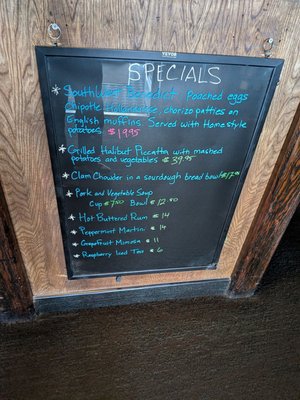 VEVOR
SPECIALS
* Southwest Benedict. Poached eggs
Chipotle Hollandaise, chorizo patties on
English muffins. Served with Homestyle
potatoes $19.95
* Grilled Halibut Piccatta with mashed
potatoes and vegetables $39.95
* Clam Chowder in a sourdough bread bowl
* Pork and Vegetable Soup
Cup $7.00 Bowl $12.00
* Hot Buttered Rum $14
* Peppermint Martini $14
* Grapefruit Mimosa $11
* Raspberry Iced Tea $6